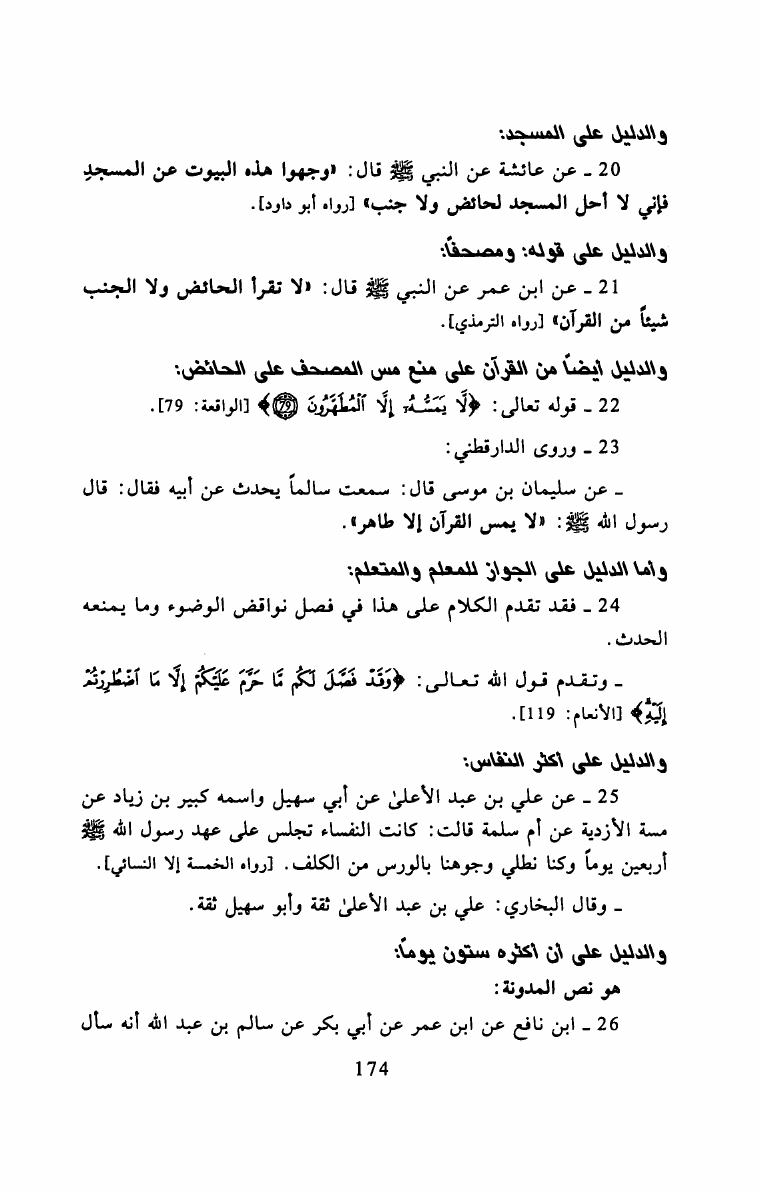 والدليل على المسجد:
20 ـ عن عائشة عن النبي ﷺ قال: «وجهوا هذه البيوت عن المسجدِ
فإني لا أحل المسجد لحائض ولا جنب» [رواه أبو داود].
والدليل على قوله: ومصحفاً:
21 ـ عن ابن عمر عن النبي ﷺ قال: «لا تقرأ الحائض ولا الجنب
شيئاً من القرآن» [رواه الترمذي].
والدليل أيضاً من القرآن على منع مس المصحف على الحائض:
22 ـ قوله تعالى: ﴿لَّا يَمَسُّهُۥٓ إِلَّا ٱلْمُطَهَّرُونَ ﴿79﴾﴾ [الواقعة: 79].
23 ـ وروى الدارقطني:
ـ عن سليمان بن موسى قال: سمعت سالماً يحدث عن أبيه فقال: قال
رسول الله ﷺ: «لا يمس القرآن إلا طاهر».
وأما الدليل على الجواز للمعلم والمتعلم:
24 ـ فقد تقدم الكلام على هذا في فصل نواقض الوضوء وما يمنعه
الحدث.
ـ وتقدم قول الله تعالى: ﴿وَقَدْ فَصَّلَ لَكُم مَّا حَرَّمَ عَلَيْكُمْ إِلَّا مَا ٱضْطُرِرْتُمْ
إِلَيْهِۗ﴾ [الأنعام: 119].
والدليل على أكثر النفاس:
25 ـ عن علي بن عبد الأعلىٰ عن أبي سهيل واسمه كبير بن زياد عن
مسة الأزدية عن أم سلمة قالت: كانت النفساء تجلس على عهد رسول الله ﷺ
أربعين يوماً وكنا نطلي وجوهنا بالورس من الكلف. [رواه الخمسة إلا النسائي].
ـ وقال البخاري: علي بن عبد الأعلىٰ ثقة وأبو سهيل ثقة.
والدليل على أن أكثره ستون يوماً:
هو نص المدونة:
26 ـ ابن نافع عن ابن عمر عن أبي بكر عن سالم بن عبد الله أنه سأل
174